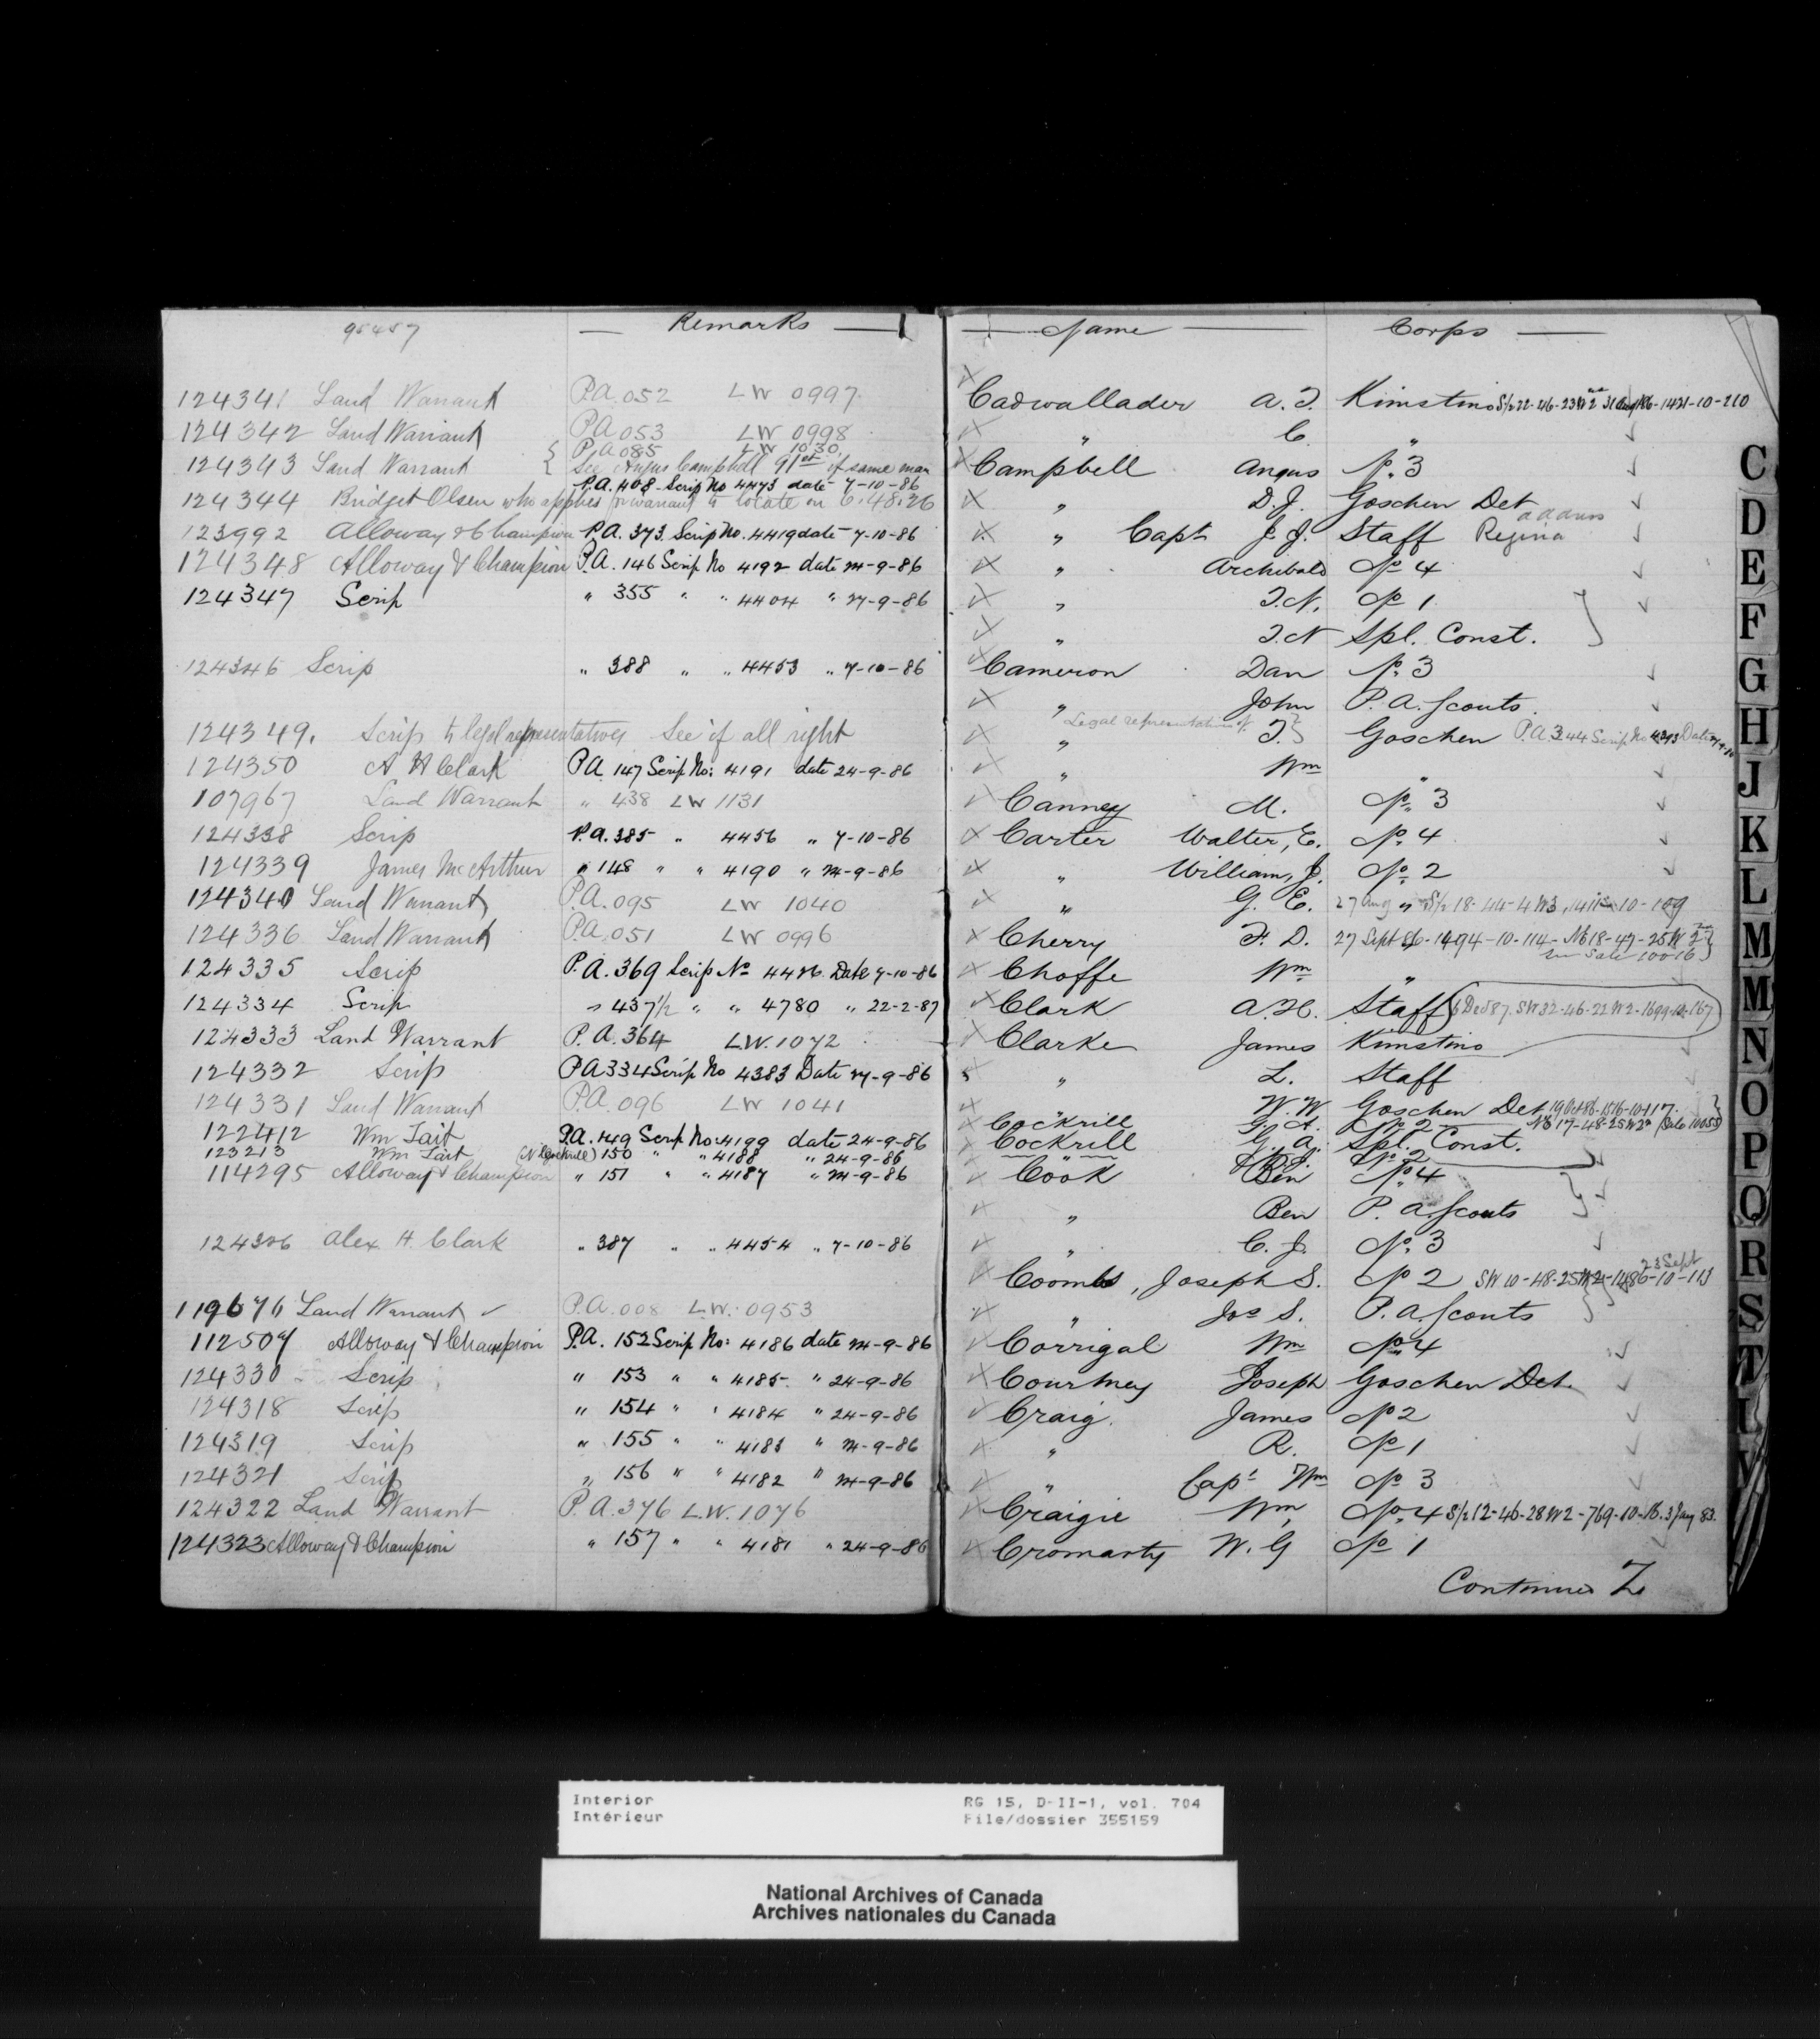 95457 — Remarks —
124341 Land Warrant P.A. 052 LW 0997
124342 Land Warrant P.A 053 LW 0998
P.A 085 LW 1030
124343 Land Warrant { See Angus Campbell 91st if same man
P.A. 408 Scrip No 4473 date 7-10-86
124344 Bridget Olsen who applies for warrant to locate on 6.48.26
123992 Alloway & Champion P.A. 373 Scrip No. 4419 date 7-10-86
124348 Alloway & Champion P.A. 146 Scrip No 4192 date 24-9-86
124347 Scrip " 355 " " 4404 " 27-9-86
124346 Scrip " 388 " " 4453 " 7-10-86
124349. Scrip to legal representatives See if all right
124350 A H Clark P.A. 147 Scrip No: 4191 date 24-9-86
107967 Land Warrant " 438 LW 1131
124338 Scrip P.A. 385 " 4456 " 7-10-86
124339 James McArthur " 148 " " 4190 " 24-9-86
124340 Land Warrant P.A. 095 LW 1040
124336 Land Warrant P.A. 051 LW 0996
124335 Scrip P.A. 369 Scrip No Date 7-10-86
124334 Scrip " 437½ " " 4780 " 22-2-87
124333 Land Warrant P.A. 364 L.W. 1072
124332 Scrip PA 334 Scrip No 4383 Date 27-9-86
124331 Land Warrant P.A. 096 LW 1041
122412 Wm Tait P.A. 149 Scrip No: date 24-9-86
123213 Wm Tait 150 " " 4188 " 24-9-86
114295 Alloway & Champion " 151 " " 4187 " 24-9-86
Alex H. Clark " 387 " " 4454 " 7-10-86
119676 Land Warrant P.A. 008 L.W. 0953
112507 Alloway & Champion P.A. 152 Scrip No: 4186 date 24-9-86
124330 Scrip " 153 " " 4185 " 24-9-86
124318 Scrip " 154 " " 4184 " 24-9-86
124319 Scrip " 155 " " 4183 " 24-9-86
124321 Scrip " 156 " " 4182 " 24-9-86
124322 Land Warrant P.A. 376 L.W. 1076
124323 Alloway & Champion " 157 " " 4181 " 24-9-86
— Name — Corps —
Cadwallader A. J. Kimstino S/2 22-46-23 W2 31 Aug 86-1421-10-210
" C. "
Campbell Angus No. 3
" D. J. Goschen Det
address
" Capt J. J. Staff Regina
" Archibald No 4
" T. N. No 1
" T. N Spl. Const.
Cameron Dan No. 3
" John P. A. Scouts.
Legal representatives of
" T. } Goschen P.A 344 Scrip No 4393 Date
" Wm "
Canney M. No. 3
Carter Walter, E. No. 4
" William, J. No. 2
" G. E. 27 Aug S/2 18-44-4 W3, 10-109
Cherry F. D. 27 Sept 86-1494-10-114-NE 18-47-25 W 2
Sale 10016
Choffe Wm "
Clark A. H. Staff 6 Dec 87. SW 32-46-22 W2-1699-10-167
Clarke James Kimstino
" L. Staff
" W. W. Goschen Det 19 Oct 86-1516-10-117
Cockrill G. A. No 2 NE 17-48-25 W2 (Sale 10055)
Cockrill G. A. Spl. Const.
" No. 2
Cook Ben No. 4
" Ben P. A. Scouts
" C. J. No. 3
23 Sept
Coombs, Joseph S. No 2 SW 10-48-25 W2-1486-10-113
" Jos S. P. A. Scouts
Corrigal Wm No. 4
Courtney Joseph Goschen Det.
Craig. James No 2
" R. No 1
" Capt Wm No 3
Craigie Wm, No. 4 S/2 12-46-28 W2-769-10-16. 3 Jany 83.
Cromarty W. G No 1
Continued Z
C
D
E
F
G
H
J
K
L
M
M
N
O
P
Q
R
S
T
Interior RG 15, D-II-1, vol. 704
Intérieur File/dossier 355159
National Archives of Canada
Archives nationales du Canada